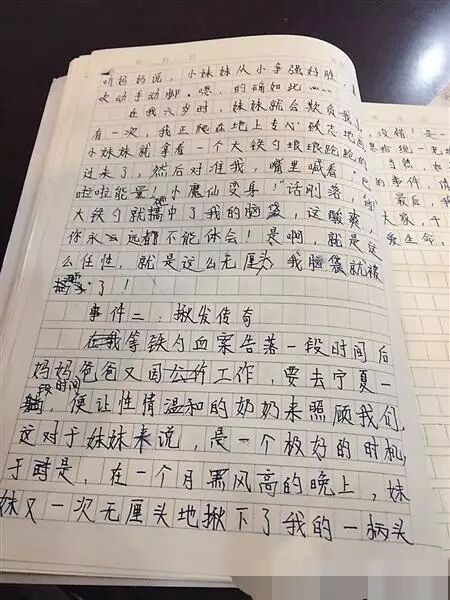 听妈妈说,小妹妹从小争强好胜,喜
欢动手动脚。嗯,的确如此……
在我六岁时,妹妹就会欺负我
有一次,我正爬在地上专心致志地画
小妹妹就拿着一个大铁勺踉踉跄跄的
过来了,然后对准我,嘴里喊着:巴
啦啦能量!小魔仙变身!话刚落,
大铁勺就搞中了我的脑袋,这酸爽,
你永远都不能体会!是啊,就是这
么任性,就是这么无厘头,我脑袋就被
了!
事件二:揪发传奇
在我等铁勺血案告落一段时间后
妈妈爸爸又因公干工作,要去宁夏一
段时间,便让性情温和的奶奶来照顾我们,
这对于妹妹来说,是一个极好的时机,
于是,在一个月黑风高的晚上,妹
妹又一次无厘头地揪下了我的一柄头
没错!是一
当然,如
的事件,请
大家,千
爱生命,